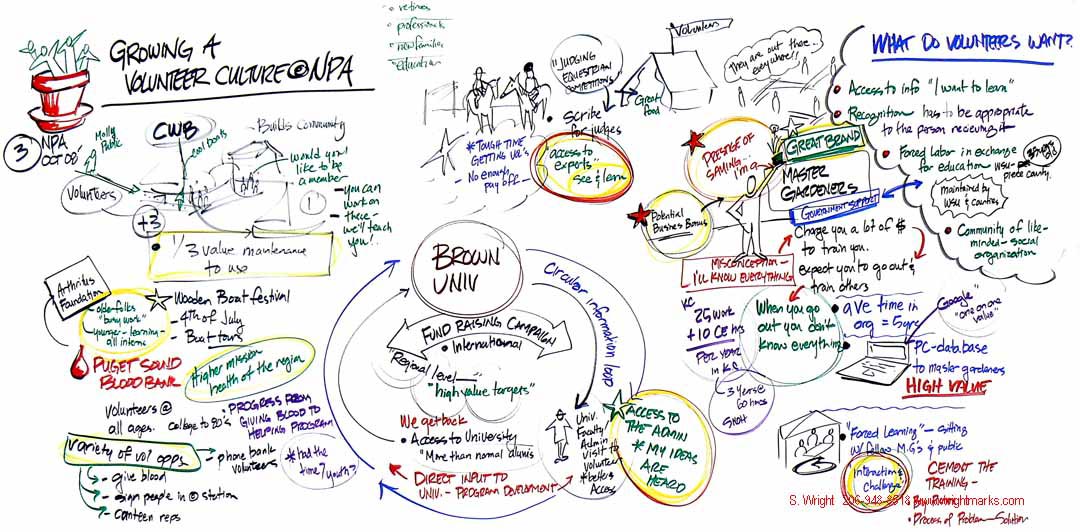 GROWING A
VOLUNTEER CULTURE @ NPA
3
NPA
OCT 08'
• retirees
• professionals
• new families
• education
Molly
Public
Volunteers
CWB
cool boats
Builds Community
would you
like to be
a member
1
- you can
work on
these -
we'll teach
you!
+3
• 1/3 value maintenance
to use
Arthritus
Foundation
- older folks
"busy work"
- younger - learning -
all interns
- Wooden Boat festival
- 4th of July
- Boat tours
PUGET SOUND
BLOOD BANK
Higher mission
health of the region
Volunteers @
all ages.
College to 80's
• PROGRESS FROM
GIVING BLOOD TO
HELPING PROGRAM
Variety of vol opps
phone bank
volunteers
- give blood
- sign people in @ station
- canteen reps
* had the
time / youth?
"JUDGING
EQUESTRIAN
COMPETITIONS"
* TOUGH TIME
GETTING VOL'S
- No enough
pay off -
• Scribe
for judges
"access to
experts"
see & learn
Great
food
Volunteers
They are out there...
everywhere!!
BROWN
UNIV
Circular information loop
FUND RAISING CAMPAIGN
• International
"Regional level -
"high value targets"
We get back
• Access to University
"More than normal alumis
DIRECT INPUT TO
UNIV. - PROGRAM DEVELOPMENT
Univ.
Faculty
Admin.
Visit to
Volunteer
* better
Access
ACCESS TO
THE ADMIN
* MY IDEAS
ARE
HEARD
PRESTIGE OF
SAYING...
"I'm a"
GREAT BRAND
MASTER
GARDENERS
GOVERNMENT SUPPORT
Potential
Business Bonus
MISCONCEPTION -
I'LL KNOW EVERYTHING
Charge you a lot of $
to train you.
expect you to go out &
train others
KC
25 work
+10 CE hrs
PER YEAR
in KC
3 Years @
60 hours
SNOH
When you go
out you don't
know everything
• aVE time in
org = 5 yrs
Google
"one on one
value"
• PC - database
to master gardeners
HIGH VALUE
WHAT DO VOLUNTEERS WANT?
• Access to info "I want to learn"
• Recognition has to be appropriate
to the person recieving it
• Forced labor in exchange
for education WSU -
pierce county.
maintained by
WSU & counties
• Community of like-
minded - social
organization
• "Forced Learning" - sitting
w/ fellow M.G.s & public
"Interaction &
Challenge"
CEMENT THE
TRAINING -
• Process of Problem - Solution
S. Wright 206-948-8518 www.wrightmarks.com